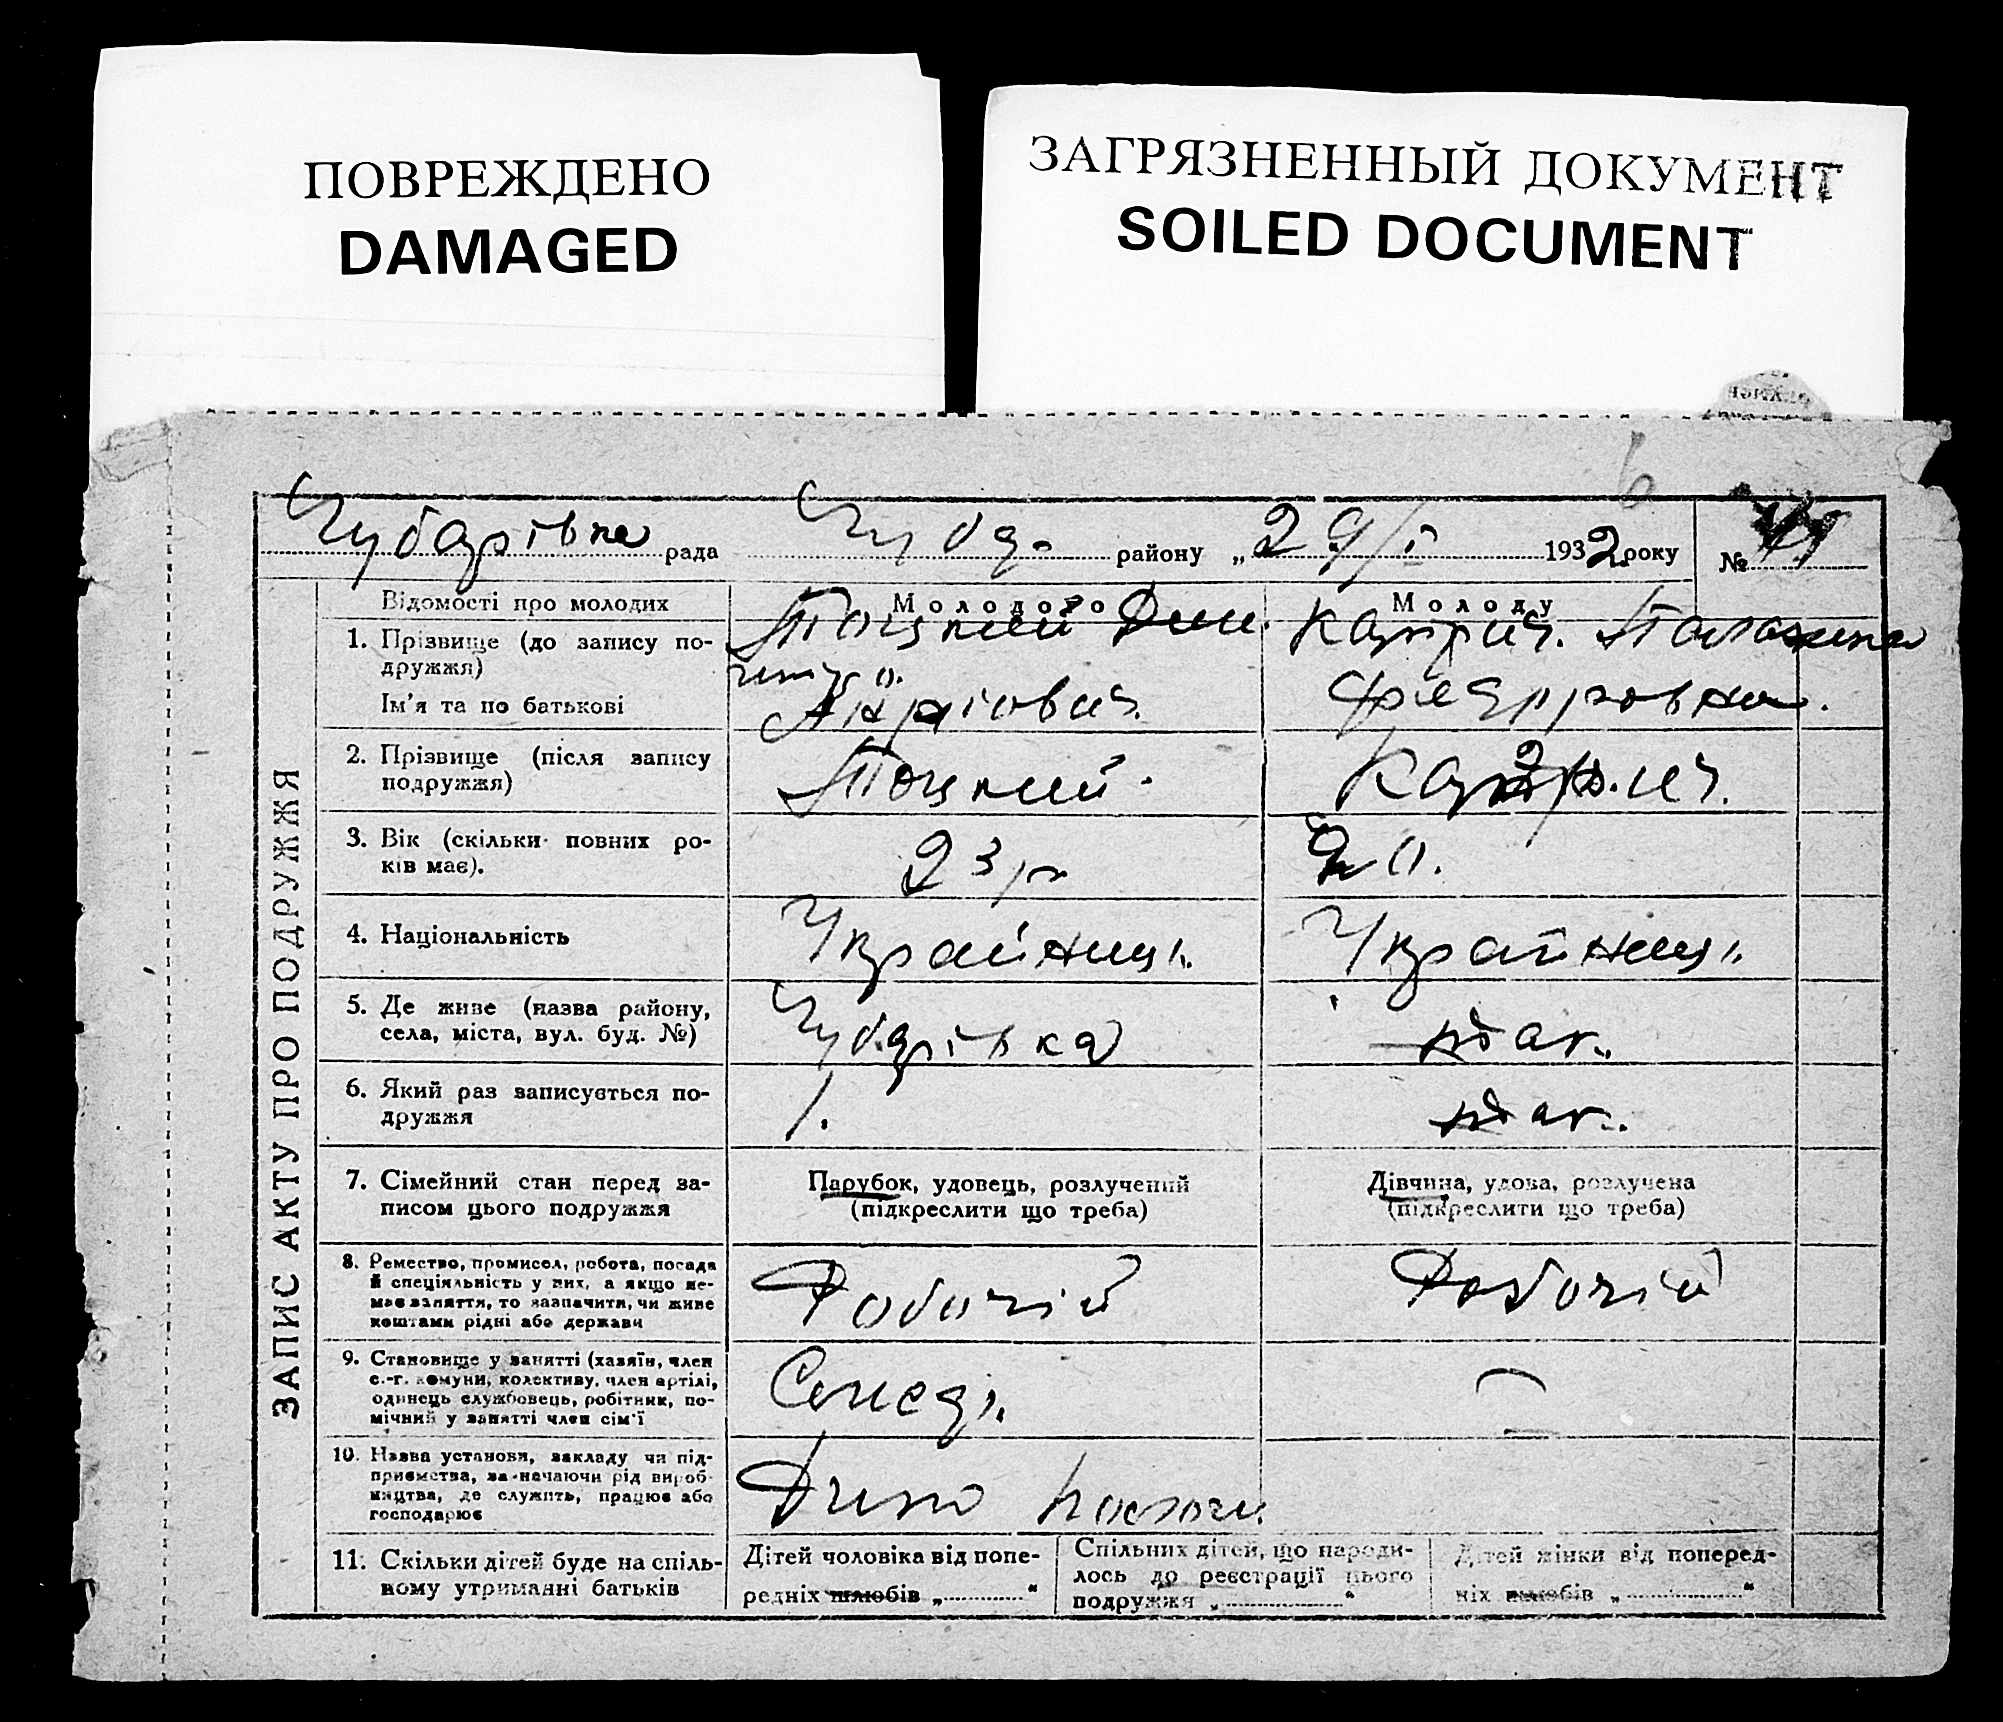 ПОВРЕЖДЕНО
DAMAGED
ЗАГРЯЗНЕННЫЙ ДОКУМЕНТ
SOILED DOCUMENT
6
Чубарівка рада Чубар району „29/I 1932 року №
ЗАПИС АКТУ ПРО ПОДРУЖЖЯ
Відомості про молодих
Молодого
Молоду
1. Прізвище (до запису по-
дружжя)
Ім'я та по батькові
Тоцкий
Федоровна.
2. Прізвище (після запису
подружжя)
Тоцкий
3. Вік (скільки повних ро-
ків має).
23 р
20.
4. Національність
Українець.
Українець.
5. Де живе (назва району,
села, міста, вул. буд. №)
Чубарівка
так.
6. Який раз записується по-
дружжя
1.
так.
7. Сімейний стан перед за-
писом цього подружжя
Парубок, удовець, розлучений
(підкреслити що треба)
Дівчина, удова, розлучена
(підкреслити що треба)
8. Ремество, промисел, робота, посада
й спеціяльність у них, а якщо не-
має заняття, то зазначити, чи живе
коштами рідні або держави
Робочій
Робочій
9. Становище у занятті (хазяїн, член
с.-г. комуни, колективу, член артілі,
одинець службовець, робітник, по-
мічний у занятті член сім'ї
10. Назва установи, закладу чи під-
приємства, зазначаючи рід вироб-
ництва, де служить, працює або
господарює
11. Скільки дітей буде на спіль-
ному утриманні батьків
Дітей чоловіка від попе-
редніх шлюбів „ “
Спільних дітей, що народи-
лось до реєстрації цього
подружжя „ “
Дітей жінки від поперед-
ніх шлюбів „ “